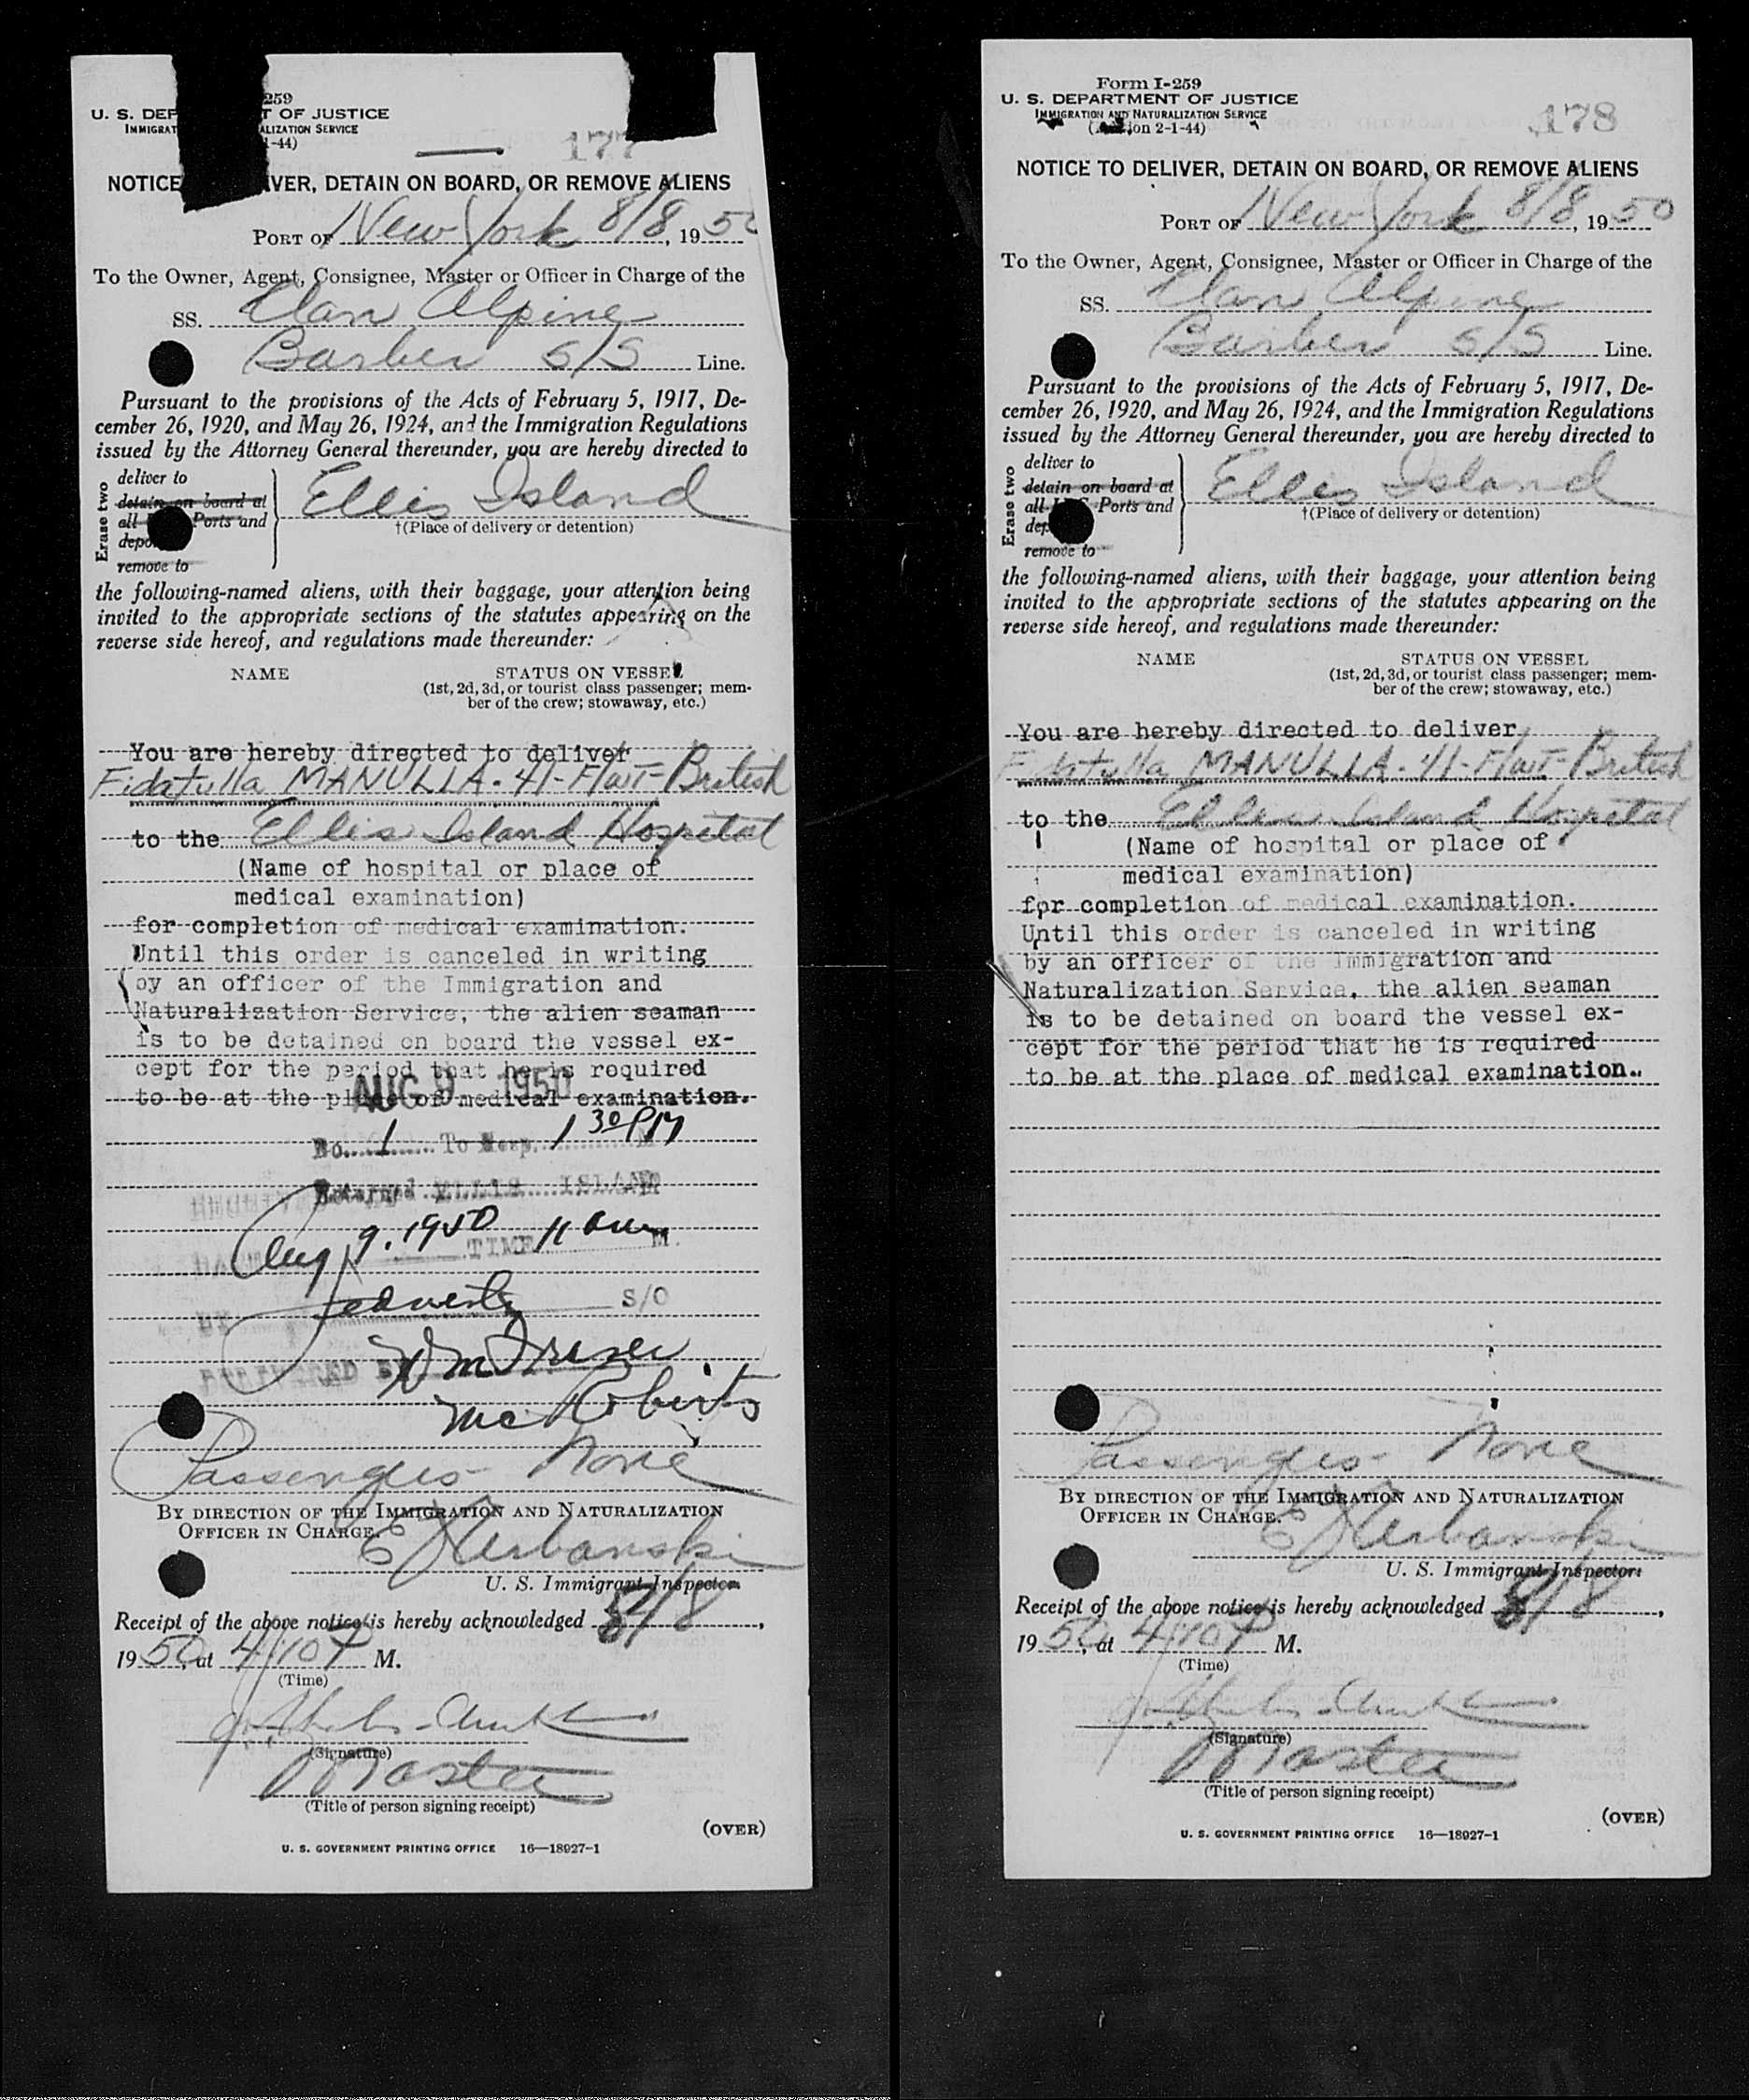 259
U. S. DEP T OF JUSTICE
IMMIGRAT ALIZATION SERVICE
1-44)
177
NOTICE IVER, DETAIN ON BOARD, OR REMOVE ALIENS
PORT OF New York 8/8, 1950
To the Owner, Agent, Consignee, Master or Officer in Charge of the
SS. Clan Alpine
Barber S/S Line.
Pursuant to the provisions of the Acts of February 5, 1917, De-
cember 26, 1920, and May 26, 1924, and the Immigration Regulations
issued by the Attorney General thereunder, you are hereby directed to
Erase two
deliver to
detain on board at
all Ports and
depo
remove to
Ellis Island
†(Place of delivery or detention)
the following-named aliens, with their baggage, your attention being
invited to the appropriate sections of the statutes appearing on the
reverse side hereof, and regulations made thereunder:
NAME STATUS ON VESSEL
(1st, 2d, 3d, or tourist class passenger; mem-
ber of the crew; stowaway, etc.)
You are hereby directed to deliver
Fidatulla MANULLA - 41 - Flat - British
to the Ellis Island Hospital
(Name of hospital or place of
medical examination)
for completion of medical examination.
Until this order is canceled in writing
by an officer of the Immigration and
Naturalization Service, the alien seaman
is to be detained on board the vessel ex-
cept for the period that he is required
to be at the place of medical examination.
AUG 9 1950
No. 1 To Hosp. 1 30 PM
Returned ELLIS ISLAND
Aug 9. 1950 TIME 11 am M.
S/O
Wm Fraser
McRoberts
Passengers - None
BY DIRECTION OF THE IMMIGRATION AND NATURALIZATION
OFFICER IN CHARGE.
E J Urbanski
U. S. Immigrant Inspector.
Receipt of the above notice is hereby acknowledged 8/8,
1950, at 4/10 P M.
(Time)
(Signature)
Master
(Title of person signing receipt)
(OVER)
U. S. GOVERNMENT PRINTING OFFICE 16—18927-1
Form I-259
U. S. DEPARTMENT OF JUSTICE
IMMIGRATION AND NATURALIZATION SERVICE
ion 2-1-44)
178
NOTICE TO DELIVER, DETAIN ON BOARD, OR REMOVE ALIENS
PORT OF New York 8/8, 1950
To the Owner, Agent, Consignee, Master or Officer in Charge of the
SS. Clan Alpine
Barber S/S Line.
Pursuant to the provisions of the Acts of February 5, 1917, De-
cember 26, 1920, and May 26, 1924, and the Immigration Regulations
issued by the Attorney General thereunder, you are hereby directed to
Erase two
deliver to
detain on board at
all U.S. Ports and
dep
remove to
Ellis Island
†(Place of delivery or detention)
the following-named aliens, with their baggage, your attention being
invited to the appropriate sections of the statutes appearing on the
reverse side hereof, and regulations made thereunder:
NAME STATUS ON VESSEL
(1st, 2d, 3d, or tourist class passenger; mem-
ber of the crew; stowaway, etc.)
You are hereby directed to deliver
Fidatulla MANULLA - 41 - Flat - British
to the Ellis Island Hospital
(Name of hospital or place of
medical examination)
for completion of medical examination.
Until this order is canceled in writing
by an officer of the Immigration and
Naturalization Service, the alien seaman
is to be detained on board the vessel ex-
cept for the period that he is required
to be at the place of medical examination.
Passengers - None
BY DIRECTION OF THE IMMIGRATION AND NATURALIZATION
OFFICER IN CHARGE.
E J Urbanski
U. S. Immigrant Inspector.
Receipt of the above notice is hereby acknowledged 8/8,
1950, at 4/10 P M.
(Time)
(Signature)
Master
(Title of person signing receipt)
(OVER)
U. S. GOVERNMENT PRINTING OFFICE 16—18927-1